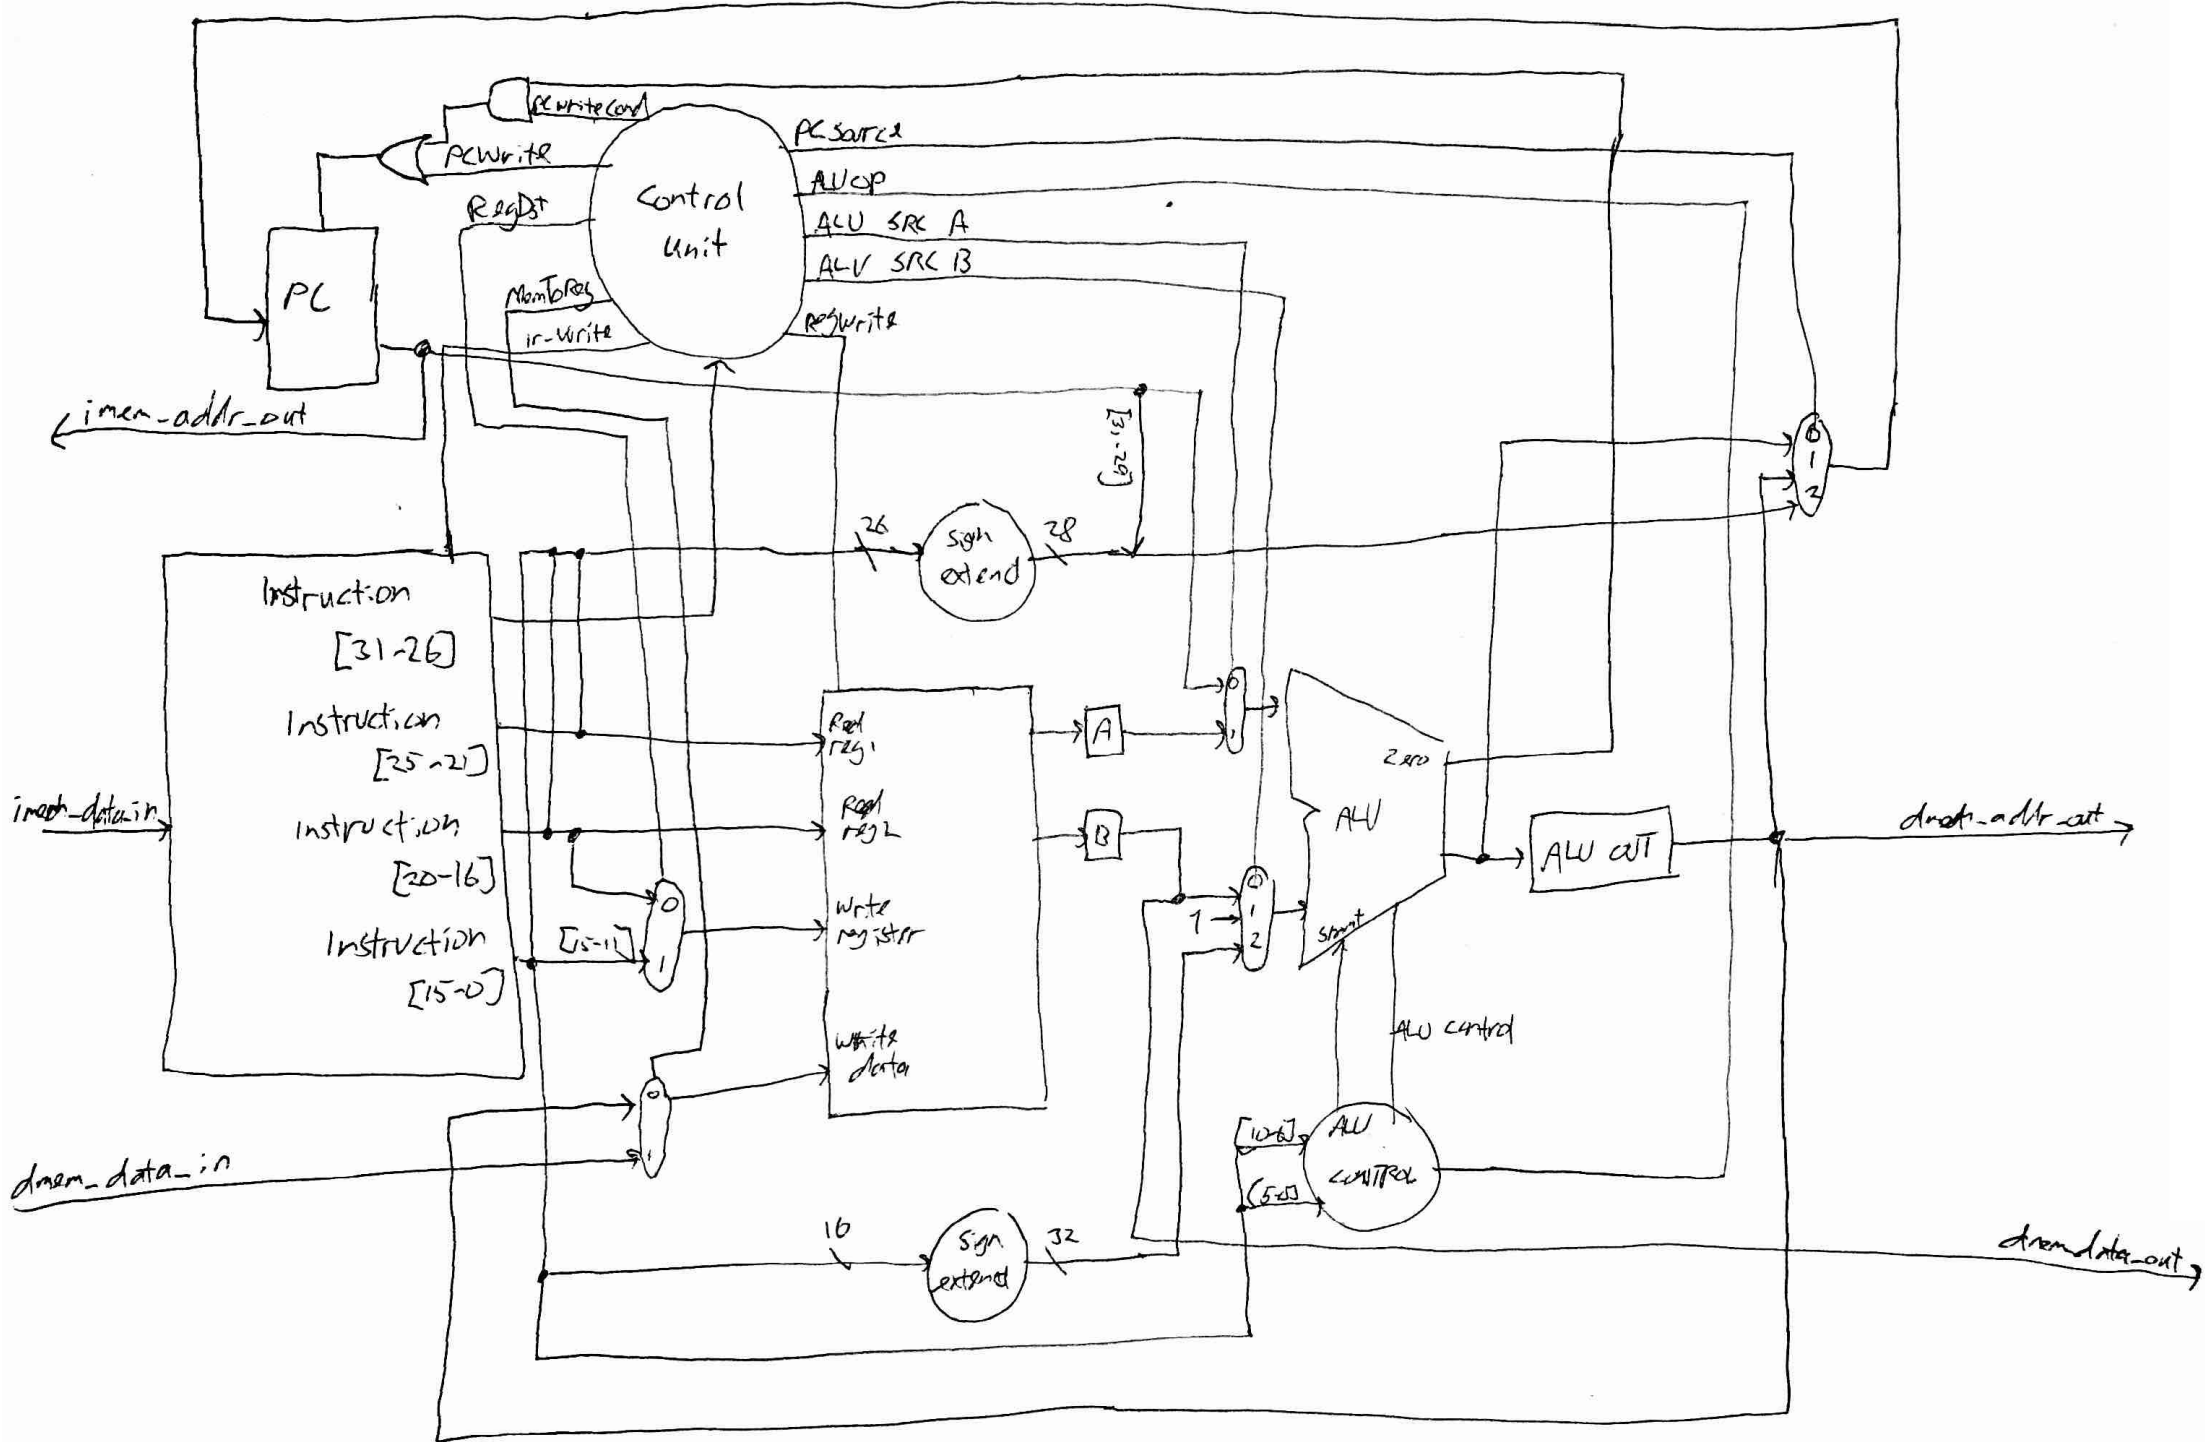 PCwriteCond
PCWrite
RegDst
MemToReg
ir-write
Control
unit
PC source
ALUOP
ALU SRC A
ALU SRC B
Regwrite
PC
imem_addr_out
[31-29]
0
1
2
26
Sign
extend
28
Instruction
[31-26]
Instruction
[25-21]
Instruction
[20-16]
Instruction
[15-0]
imem_data_in
[15-11]
0
1
Read
reg1
Read
reg2
Write
register
Write
data
A
B
0
1
0
1
2
1
Zero
ALU
shamt
ALU OUT
dmem_addr_out
ALU control
0
1
dmem_data_in
[10-6]
[5-0]
ALU
CONTROL
16
Sign
extend
32
dmem data_out